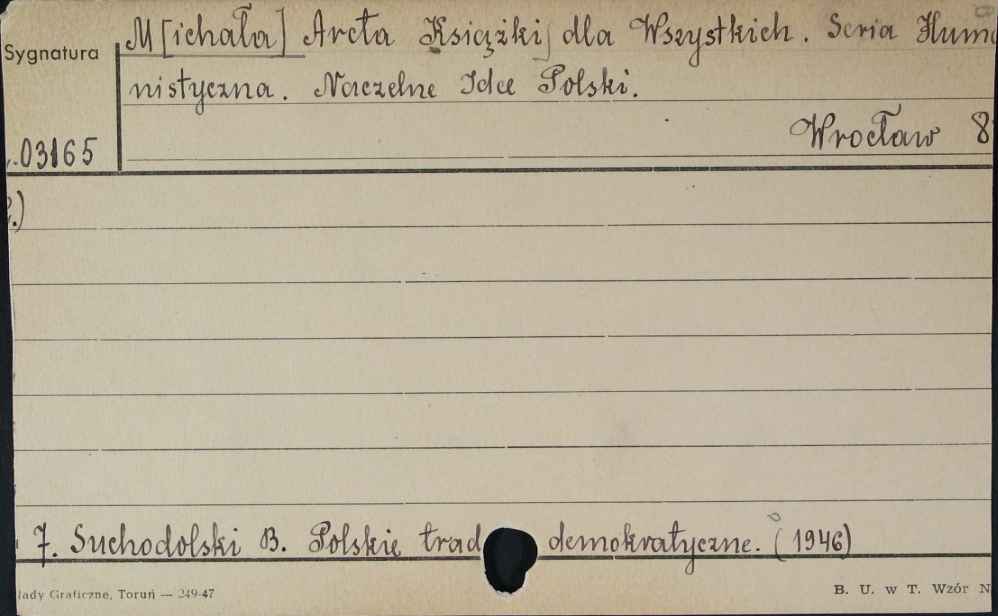 M[ichała] Arcta Książki dla Wszystkich. Seria Huma
Sygnatura
nistyczna. Naczelne Idee Polski.
Wrocław 8
.03165
.)
7. Suchodolski B. Polskie trad demokratyczne. (1946)
łady Graficzne, Toruń — 249-47
B. U. w T. Wzór N